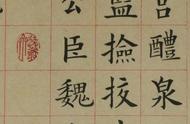 宮醴泉
監撿挍
公臣魏